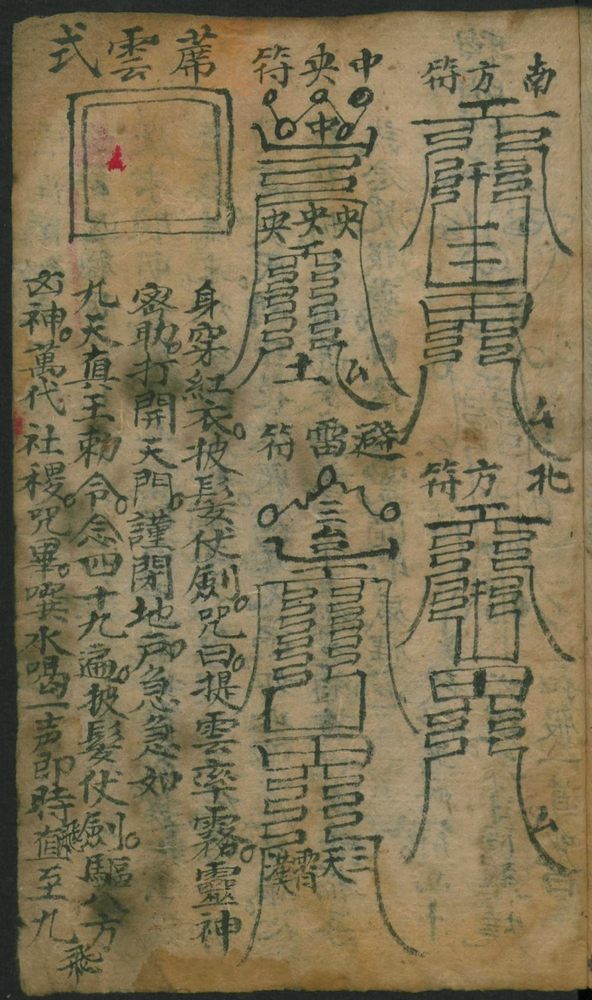 南方符
北方符
中央符
中
央央央
土
避雷符
三台
三天
霄漢
蓆雲式
身穿紅衣。披髮仗劍。咒曰。提雲率霧。靈神
密助。打開天門。謹閉地戶。急急如
九天真王勅令。念四十九遍。披髮仗劍。驅八方
凶神。萬代社稷。咒畢。噀水喝一声即時飛至九
飛